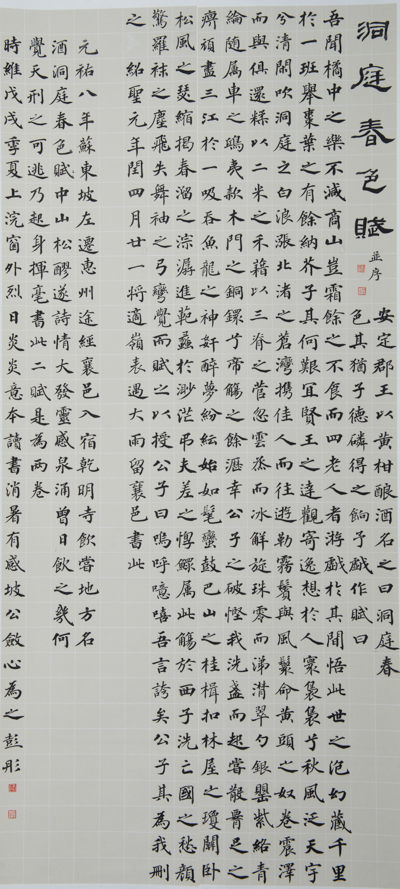 洞庭春色賦
並序
安定郡王以黄柑酿酒名之曰洞庭春
色其猶子德磷得之餉予戲作賦曰
吾聞橘中之樂不減商山豈霜餘之不食而四老人者游戲於其間悟此世之泡幻藏千里
於一班舉棗葉之有餘納芥子其何艱宜賢王之達觀寄逸想於人寰裊裊兮秋風泛天宇
兮清閑吹洞庭之白浪漲北渚之蒼灣携佳人而往遊勒霧鬢與風鬟命黄頭之奴卷震澤
而與俱還糅以二米之禾藉以三脊之菅忽雲蒸而冰解旋珠零而涕潸翠勺銀罌紫絡青
綸随属車之鴟夷款木門之銅鐶分帝觴之餘瀝幸公子之破慳我洗盞而起嘗散腰足之
痹頑盡三江於一吸吞魚龍之神奸醉夢紛紜始如髦蠻鼓巴山之桂楫扣林屋之瓊關卧
松風之瑟縮揭春溜之淙潺追范蠡於渺茫吊夫差之惸鰥属此觴於西子洗亡國之愁顏
驚羅袜之塵飛失舞袖之弓彎覺而賦之以授公子曰嗚呼噫嘻吾言誇矣公子其為我刪
之 紹聖元年閏四月廿一將適嶺表遇大雨留襄邑書此
元祐八年蘇東坡左遷惠州途經襄邑入宿乾明寺飲當地方名
酒洞庭春色賦中山松醪遂詩情大發靈感泉涌曾日飲之幾何
覺天刑之可逃乃起身揮毫書此二賦是為兩卷
時維戊戌季夏上浣窗外烈日炎炎意本讀書消暑有感坡公斂心為之彭彤